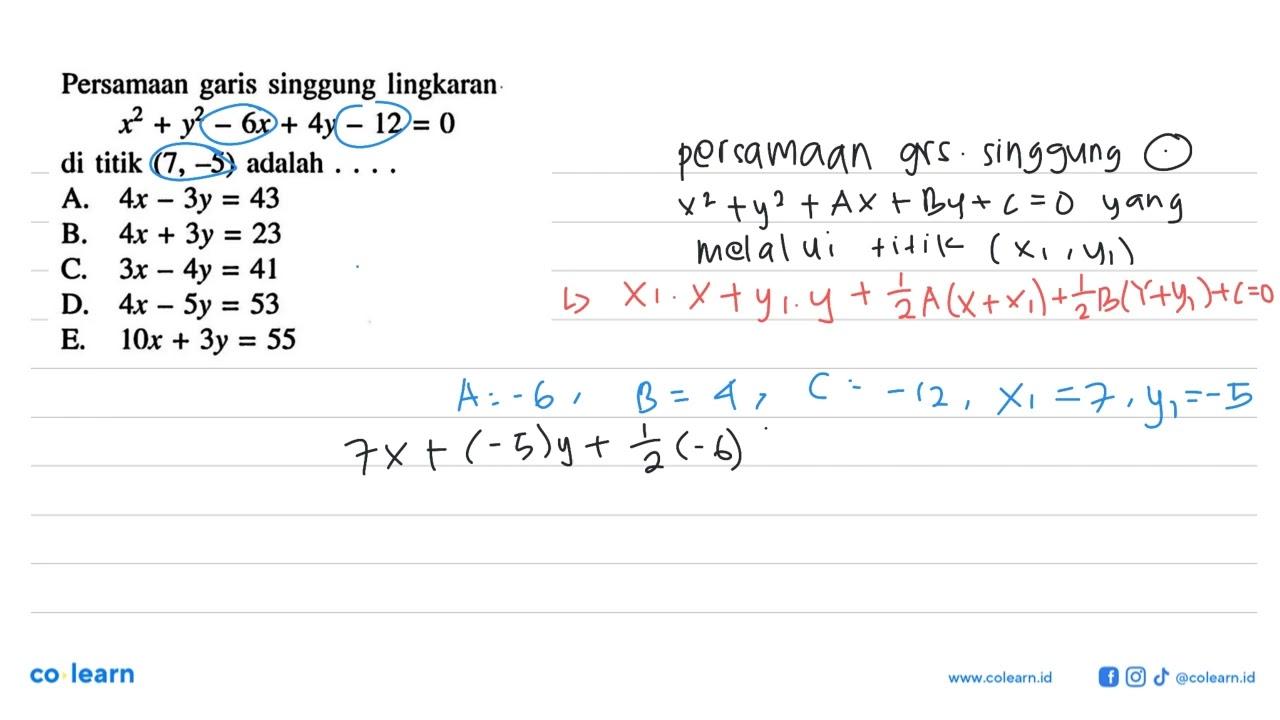 Persamaan garis singgung lingkaran
x² + y² – 6x + 4y – 12 = 0
di titik (7, –5) adalah . . . .
A. 4x – 3y = 43
B. 4x + 3y = 23
C. 3x – 4y = 41
D. 4x – 5y = 53
E. 10x + 3y = 55
persamaan grs. singgung ⊙
x² + y² + Ax + By + C = 0 yang
melalui titik (x₁, y₁)
↳ x₁.x + y₁.y + 1/2 A(x + x₁) + 1/2 B(y + y₁) + C = 0
A = -6, B = 4, C = -12, x₁ = 7, y₁ = -5
7x + (-5)y + 1/2 (-6)
co learn
www.colearn.id
@colearn.id